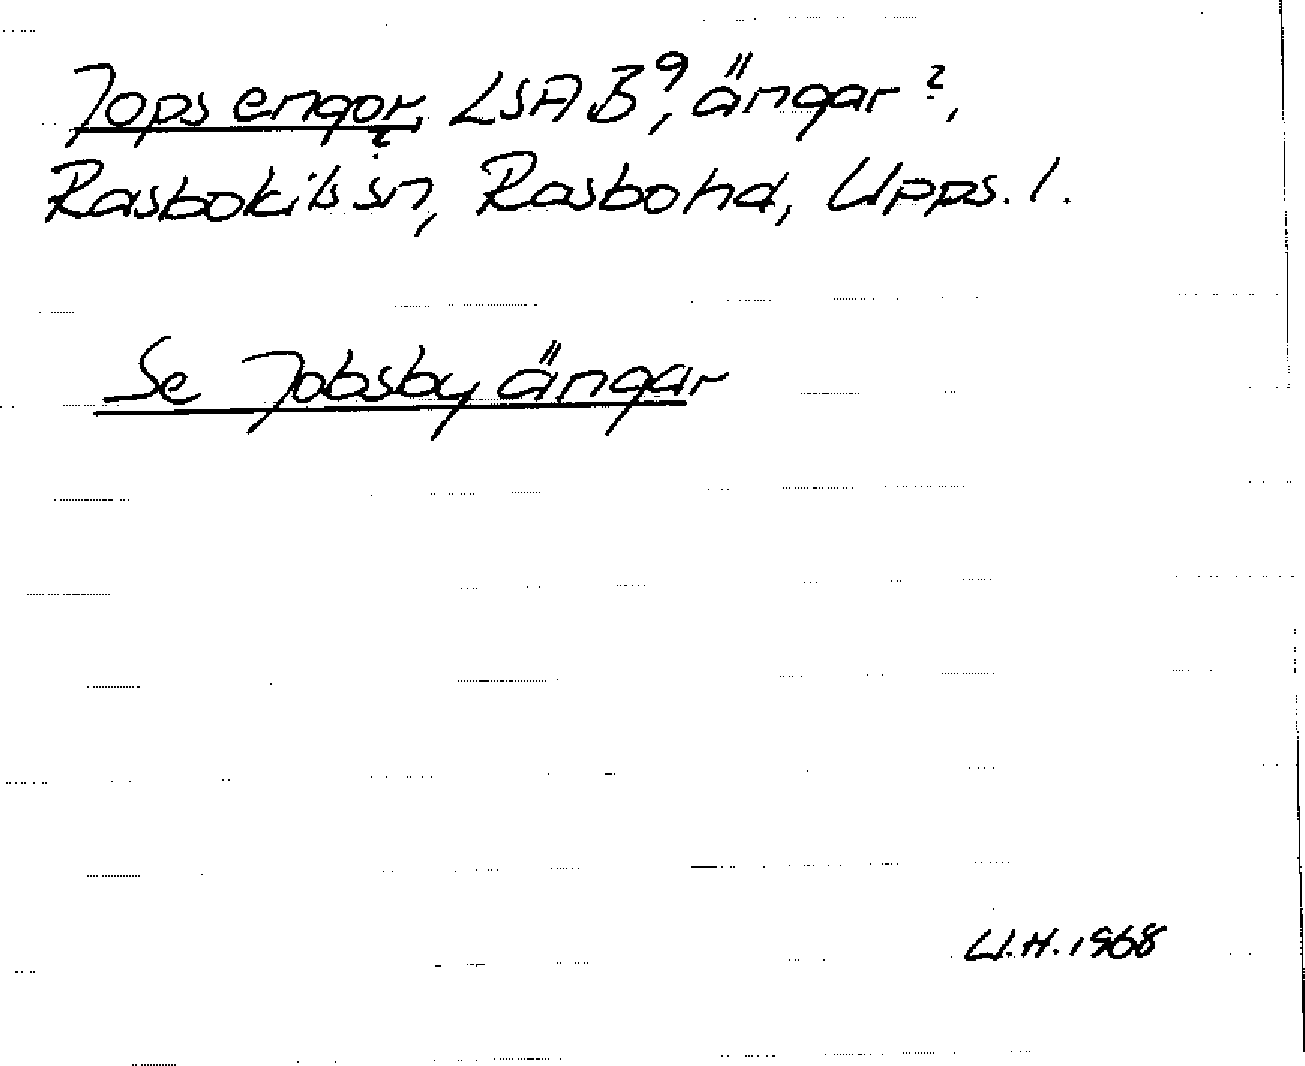 Jops engor, LSA B⁹, ängar ?,
?
Rasbokils sn, Rasbo hd, Upps. l.
Se Jobsby ängar
U.H. 1968